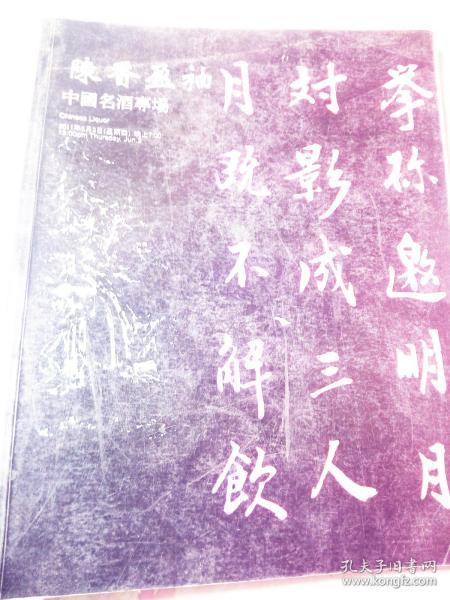 陳香盈袖
中國名酒專場
Chinese Liquor
2011年6月2日(星期四) 晚上7:00
19:00pm Thursday, Jun.2
舉杯邀明月
对影成三人
月既不解飲
孔夫子旧书网
www.kongfz.com